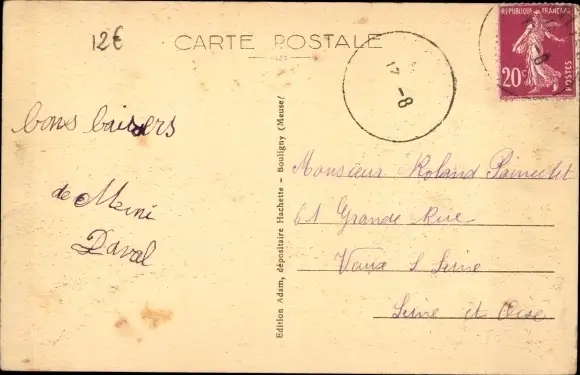 12€
CARTE POSTALE
REPUBLIQUE FRANÇAISE
20c
POSTES
17 -8
-8
bons baisers
de Mimi
Daval
Edition Adam, dépositaire Hachette - Bouligny (Meuse)
Monsieur Roland
61 Grande Rue
Vaux S Seine
Seine et Oise